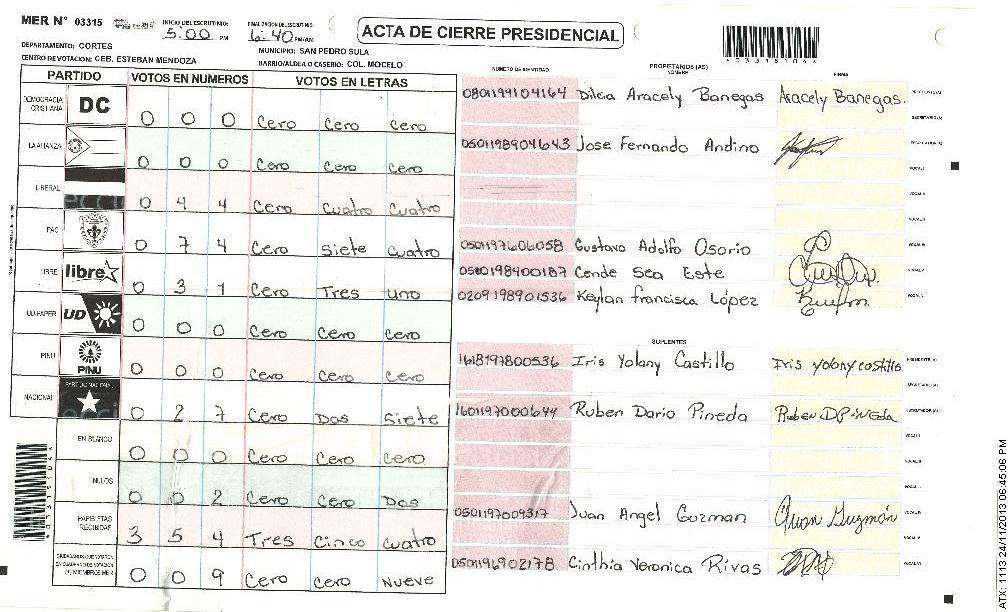 MER N° 03315 INICIO DEL ESCRUTINIO: 5:00 PM FINALIZACION DEL ESCRUTINIO: 6:40 PM/AM
ACTA DE CIERRE PRESIDENCIAL
DEPARTAMENTO: CORTES MUNICIPIO: SAN PEDRO SULA
CENTRO DE VOTACION: CEB. ESTEBAN MENDOZA BARRIO/ALDEA O CASERIO: COL. MOCELO
PARTIDO VOTOS EN NUMEROS VOTOS EN LETRAS
DEMOCRACIA CRISTIANA DC 0 0 0 Cero Cero Cero
LA ALIANZA 0 0 0 Cero Cero Cero
LIBERAL 0 4 4 Cero Cuatro Cuatro
PAC 0 7 4 Cero Siete Cuatro
LIBRE libre 0 3 1 Cero Tres uno
UD-FAPER UD 0 0 0 Cero Cero Cero
PINU PINU 0 0 0 Cero Cero Cero
NACIONAL PARTIDO NACIONAL 0 2 7 Cero Dos Siete
EN BLANCO 0 0 0 Cero Cero Cero
NULOS 0 0 2 Cero Cero Dos
PAPELETAS RECIBIDAS 3 5 4 Tres Cinco Cuatro
CIUDADANOS QUE VOTARON EN CUADERNO DE VOTACION (+) MIEMBROS MER 0 0 9 Cero Cero Nueve
NUMERO DE IDENTIDAD PROPIETARIOS (AS) NOMBRE FIRMA
0801199104164 Dilcia Aracely Banegas Aracely Banegas. PRESIDENTE (A)
SECRETARIO (A)
0501198904643 Jose Fernando Andino ESCRUTADOR (A)
VOCAL I
VOCAL II
VOCAL III
0501197606058 Gustavo Adolfo Osorio VOCAL IV
0580198400187 Cende Sea Este VOCAL V
0209198901536 Keylan francisca López
SUPLENTES
1618197800536 Iris Yolany Castillo Iris yolany castillo PRESIDENTE (A)
SECRETARIO (A)
1601197000644 Ruben Dario Pineda Ruben D Pineda ESCRUTADOR (A)
VOCAL I
VOCAL II
VOCAL III
0501197009317 Juan Angel Guzman Juan Guzmán VOCAL IV
VOCAL V
0501196902178 Cinthia Veronica Rivas VOCAL VI
*03315104*
ATX: 1113 24/11/2013 06:45:06 PM